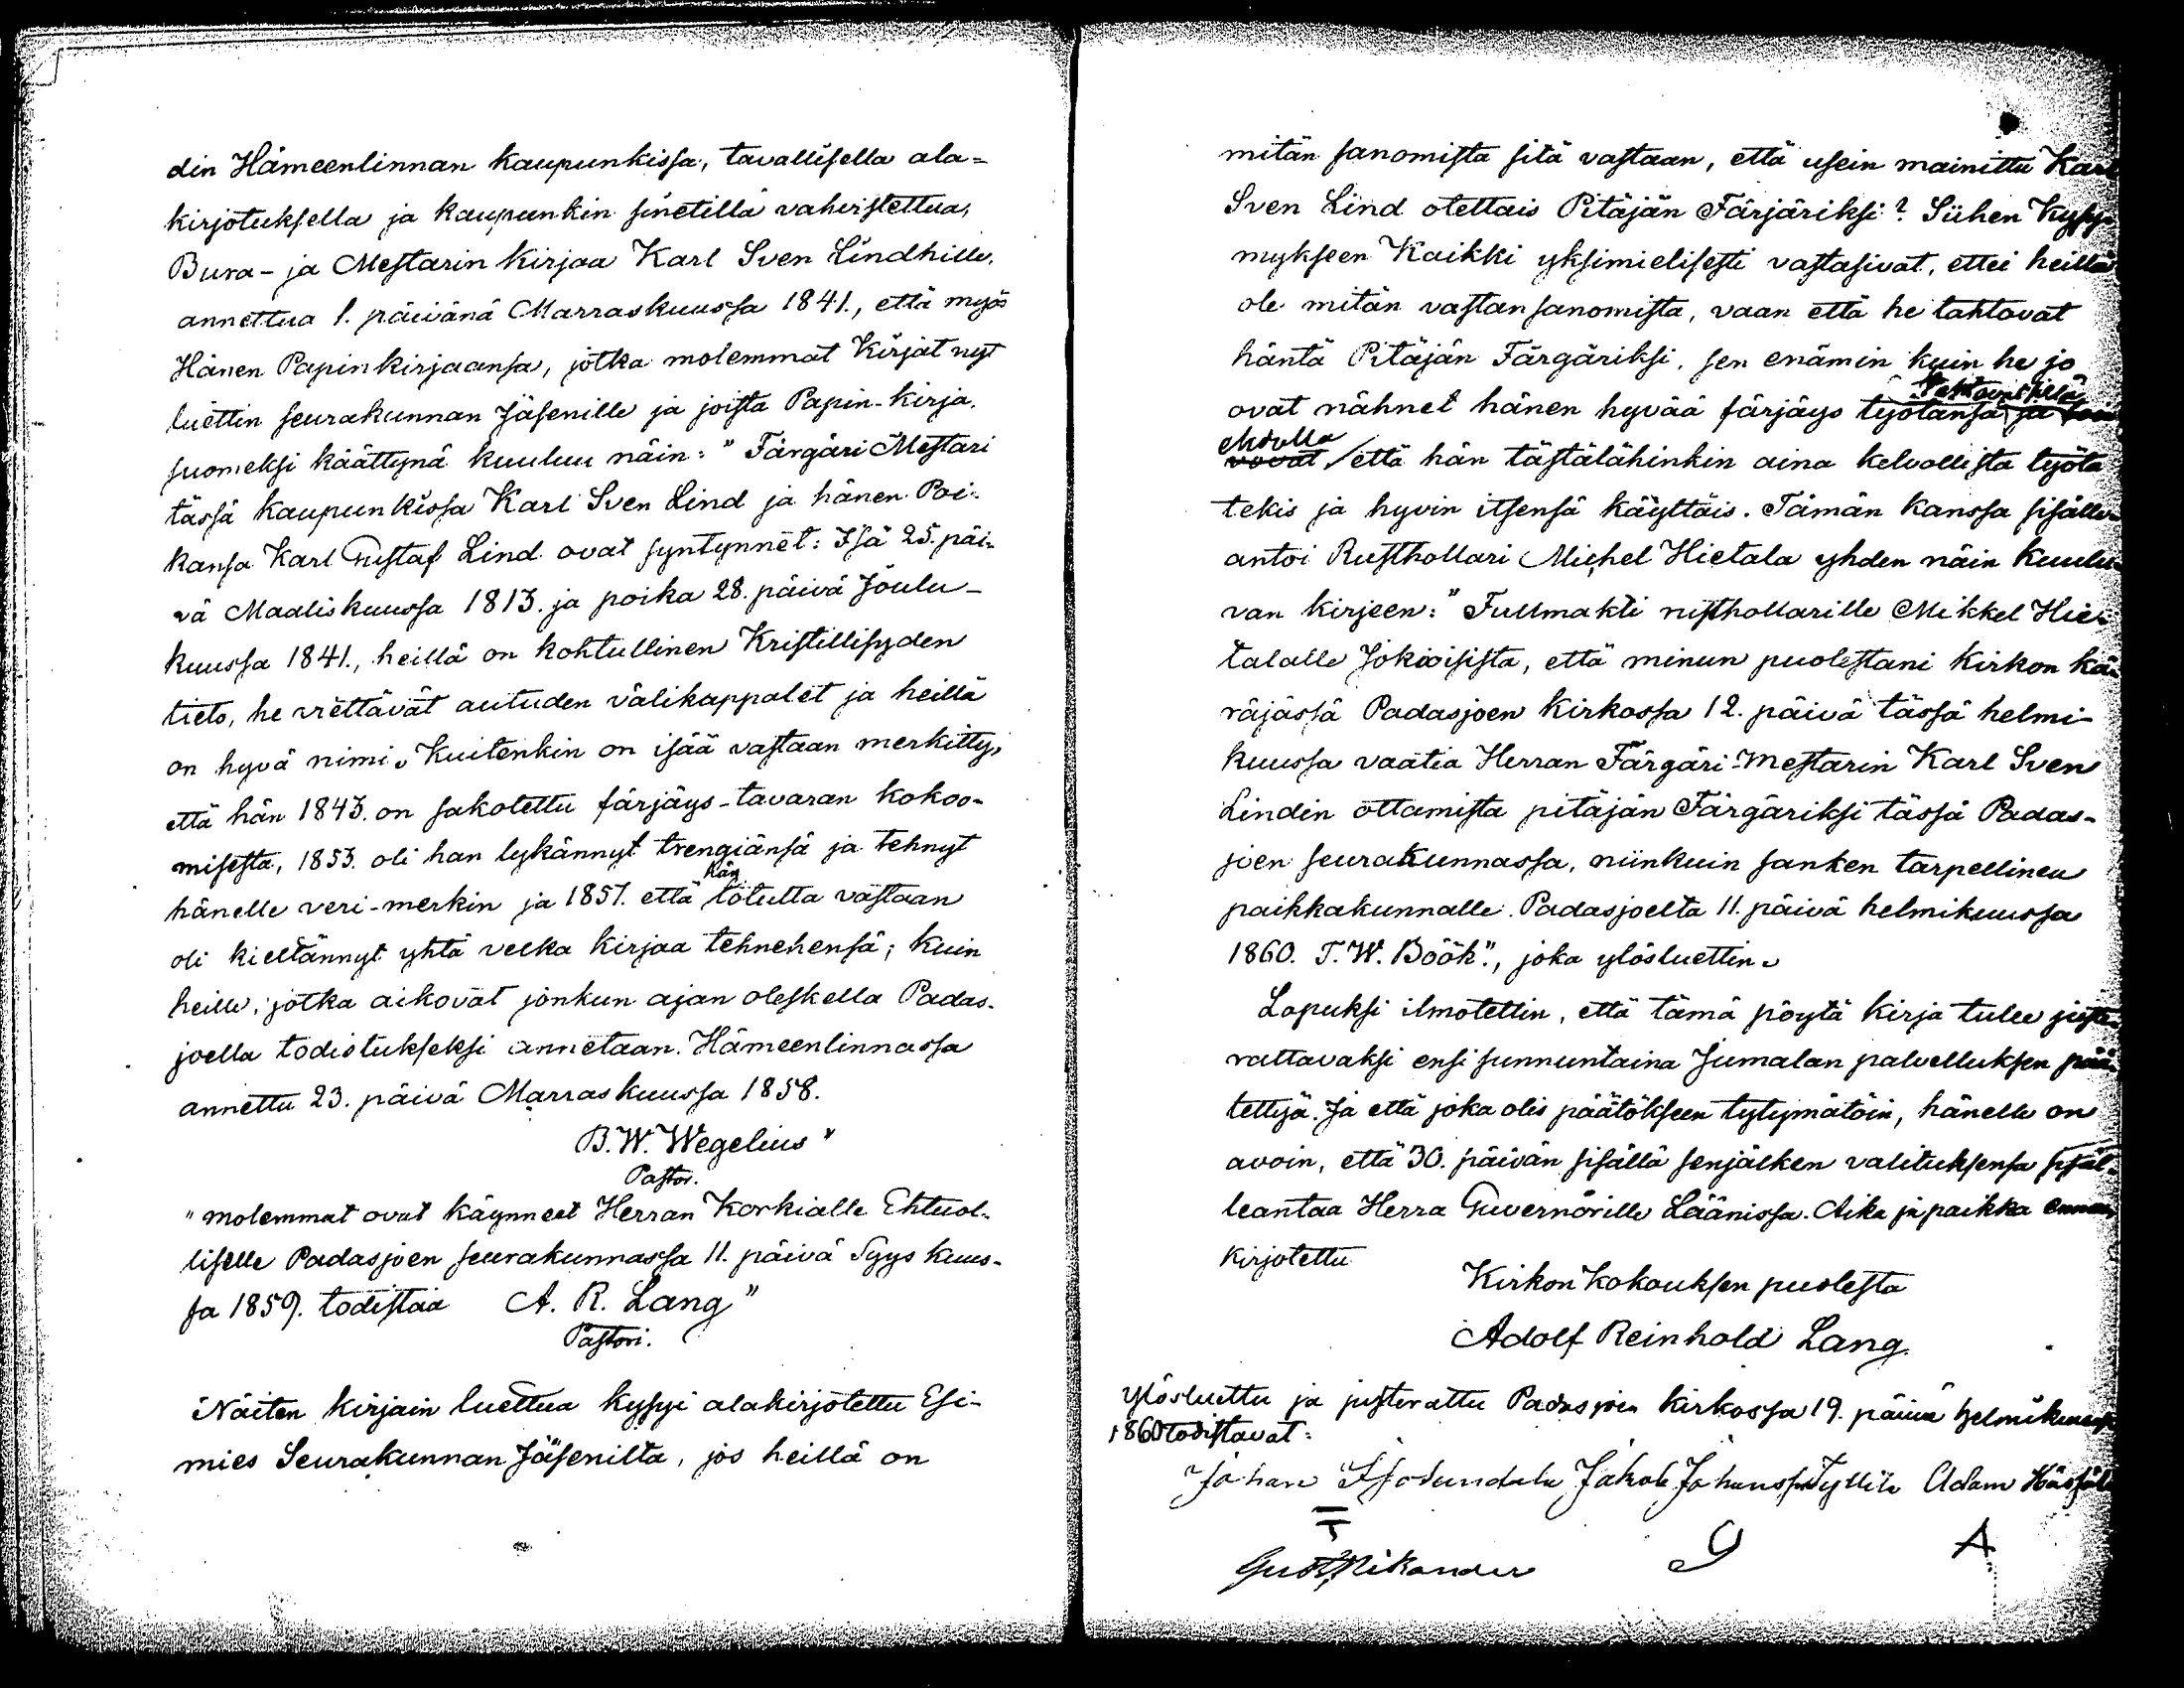 din Hämeenlinnan kaupunkissa, tavallisella ala=
kirjotuksella ja kaupunkin sinetillä vahvistettua,
Bura- ja Mestarin kirjaa Karl Sven Lindhille,
annettua 1. päivänä Marraskuussa 1841., että myös
Hänen Papinkirjaansa, jotka molemmat kirjat nyt
luettin seurakunnan Jäsenille ja joista Papin-kirja,
suomeksi käättynä kuuluu näin: "Färgäri Mestari
tässä kaupunkissa Karl Sven Lind ja hänen Poi-
kansa Karl Gustaf Lind ovat syntynnet: Isä 25. päi-
vä Maaliskuussa 1813. ja poika 28. päivä Joulu-
kuussa 1841., heillä on kohtullinen Kristillisyden
tieto, he viettävät autuden välikappalet ja heillä
on hyvä nimi. Kuitenkin on isää vastaan merkitty,
että hän 1843. on sakotettu färjäys-tavaran kokoo-
misesta, 1853. oli han lykännyt trengiänsä ja tehnyt
hänelle veri-merkin ja 1857. että hän totutta vastaan
oli kieltännyt yhtä velka kirjaa tehnehensä; kuin
heille, jotka aikovat jonkun ajan oleskella Padas-
joella todistukseksi annetaan. Hämeenlinnassa
annettu 23. päivä Marraskuussa 1858.
B. W. Wegelius"
Pastor.
"molemmat ovat käynneet Herran Korkialle Ehtuol-
liselle Padasjoen seurakunnassa 11. päivä Syys kuus-
sa 1859. todistaa A. R. Lang"
Pastori.
Näiten kirjain luettua kysyi alakirjotettu Esi-
mies Seurakunnan Jäsenilta, jos heillä on
mitän sanomista sitä vastaan, että usein mainittu Karl
Sven Lind otettais Pitäjän Färjäriksi? Siihen kysy-
mykseen Kaikki yksimielisesti vastasivat, ettei heillä
ole mitän vastansanomista, vaan että he tahtovat
häntä Pitäjän Färgäriksi, sen enämin kuin he jo
ovat nähnet hänen hyvää färjäys työtänsä ja
ehdolla että hän tästälähinkin aina kelvollista työtä
tekis ja hyvin itsensä käyttäis. Tämän kanssa sisälle-
antoi Rusthollari Michel Hietala yhden näin kuulu-
van kirjeen: "Fullmakti rusthollarille Mikkel Hie-
talalle Jokioisista, että minun puolestani kirkon kä-
räjässä Padasjoen kirkossa 12. päivä tässä helmi-
kuussa vaatia Herran Färgäri-Mestarin Karl Sven
Lindin ottamista pitäjän Färgäriksi tässä Padas-
joen seurakunnassa, niinkuin sanken tarpellinen
paikkakunnalle. Padasjoelta 11. päivä helmikuussa
1860. T. W. Böök", joka ylösluettin.
Lopuksi ilmotettin, että tämä pöytä kirja tulee juste-
rattavaksi ensi sunnuntaina Jumalan palvelluksen pää-
tettyä. Ja että joka olis päätökseen tytymätöin, hänelle on
avoin, että 30. päivän sisällä senjälken valituksensa sisäl-
leantaa Herra Guvernörille Läänissa. Aika ja paikka ennen
kirjotettu
Kirkon kokouksen puolesta
Adolf Reinhold Lang.
Ylösluettu ja justerattu Padasjoen kirkossa 19. päivä helmikuussa
1860 todistavat:
Johan Jakob Johansson Tyllilä Adam
Gust Nikander
A